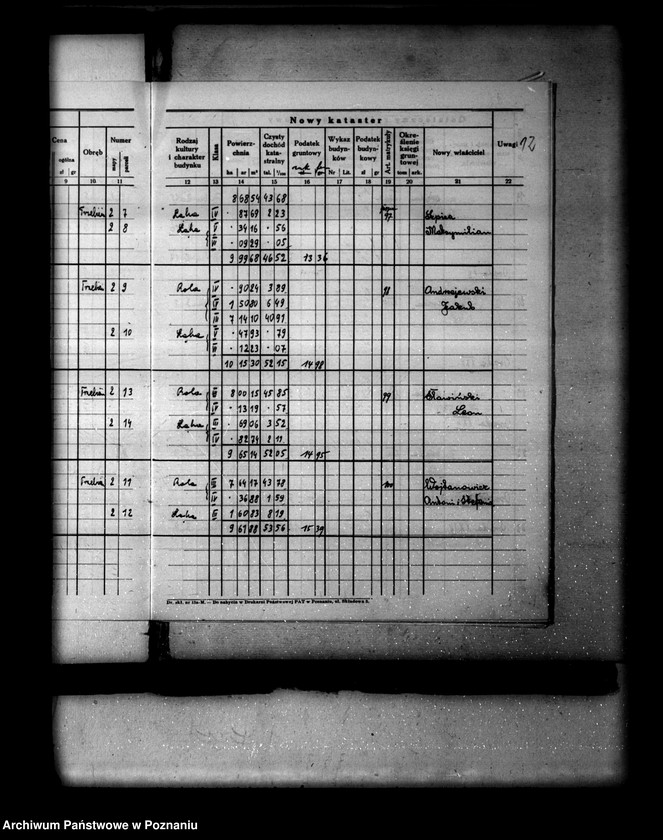 Nowy kataster
12
Cena
ogólna
zł gr
Obręb
Numer
mapy
parceli
Rodzaj kultury i charakter budynku
Klasa
Powierzchnia
ha ar m²
Czysty dochód katastralny
tal. 1/100
Podatek gruntowy
Wykaz budynków
Nr Lit.
Podatek budynkowy
zł gr
Art. matrykuły
Określenie księgi gruntowej
tom ark.
Nowy właściciel
Uwagi
9 10 11 12 13 14 15 16 17 18 19 20 21 22
8 68 54 43 68
2 7 Łąka IV · 87 69 2 23 97 Maksymilian
2 8 Łąka V · 34 16 · 56
VI · 09 29 · 05
9 99 68 46 52 13 36
2 9 Rola IV · 90 24 3 89 98 Andrzejewski
V 1 50 80 6 49 Jakub
7 14 10 40 91
2 10 Łąka V · 47 93 · 79
VI · 12 23 · 07
10 15 30 52 15 14 98
2 13 Rola III 8 00 15 45 85 99 Sławiński
IV · 13 19 · 57 Leon
2 14 Łąka III · 69 06 3 52
IV · 82 74 2 11
9 65 14 52 05 14 95
2 11 Rola III 7 64 17 43 78 100 Wojtanowicz
IV · 36 88 1 59 Antoni i Stefania
2 12 Łąka III 1 60 83 8 19
9 61 88 53 56 15 39
Dr. skł. nr 11a-M. — Do nabycia w Drukarni Państwowej PAT w Poznaniu, ul. Składowa 2.
Archiwum Państwowe w Poznaniu